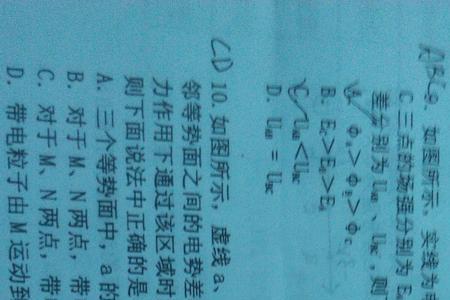 ABC 9. 如图所示，实线为
C三点的场强分别为E
差分别为U_AB、U_BC，则
A. φ_A＞φ_B＞φ_C
B. E_C＞E_B＞E_A
C. U_AB＜U_BC
D. U_AB = U_BC
CD 10. 如图所示，虚线a、
邻等势面之间的电势差
力作用下通过该区域时
则下面说法中正确的是
A. 三个等势面中，a的
B. 对于M、N两点，带
C. 对于M、N两点，带
D. 带电粒子由M运动到